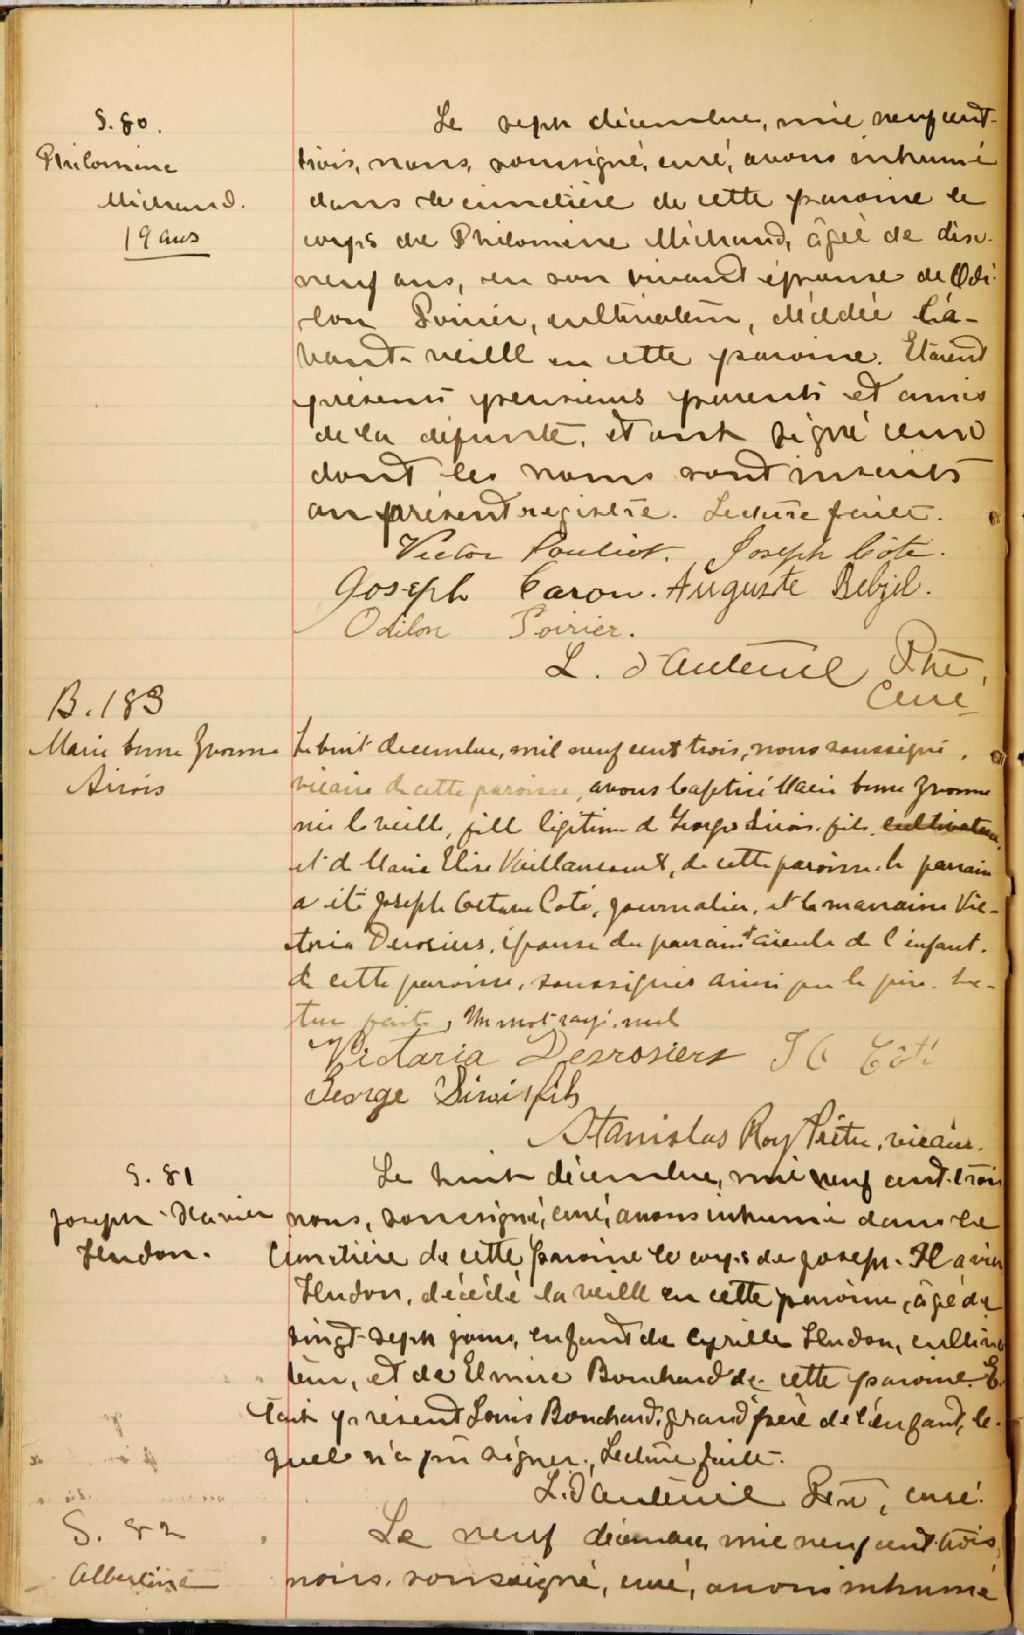 S. 80.
Philomène
Michaud.
19 ans
Le sept décembre, mil neuf cent-
trois, nous, soussigné, curé, avons inhumé
dans le cimetière de cette paroisse le
corps de Philomène Michaud, âgée de dix-
neuf ans, en son vivant épouse de Odi-
lon Poirier, cultivateur, décédée l'a-
vant-veille en cette paroisse. Etaient
présents plusieurs parents et amis
de la défunte, et ont signé ceux
dont les noms sont inscrits
au présent registre. Lecture faite.
Victor Pouliot. Joseph Côté.
Joseph Caron. Auguste Belzil.
Odilon Poirier.
L. d'Auteuil Ptre,
Curé
B. 183
Marie Yvonne
Sirois
Le huit decembre, mil neuf cent trois, nous soussigné,
vicaire de cette paroisse, avons baptisé Marie Yvonne
née la veille, fille légitime de George Sirois fils, cultivateur,
et de Marie Elise Vaillancourt, de cette paroisse. Le parrain
a été Joseph Octave Coté, journalier, et la marraine Vic-
toria Derosiers, épouse du parrain et aieule de l'enfant.
de cette paroisse, soussignés ainsi que le père. Lec-
ture faite, Un mot rayé nul
Victoria Desrosiers J O Côté
George Sirois fils
Stanislas Roy Prêtre, vicaire.
S. 81
Joseph-Xavier
Hudon.
Le huit décembre, mil neuf cent-trois
nous, soussigné, curé, avons inhumé dans le
cimetière de cette paroisse le corps de Joseph-Xavier
Hudon, décédé la veille en cette paroisse, âgé de
vingt-sept jours, enfant de Cyrille Hudon, cultiva
teur, et de Elmire Bouchard de cette paroisse. E-
tait présent Louis Bouchard, grand'père de l'enfant, le-
quel n'a pu signer. Lecture faite.
L. d'Auteuil Ptre, curé.
S. 82
Albertine
Le neuf décembre mil neuf cent-trois,
nous, soussigné, curé, avons inhumé